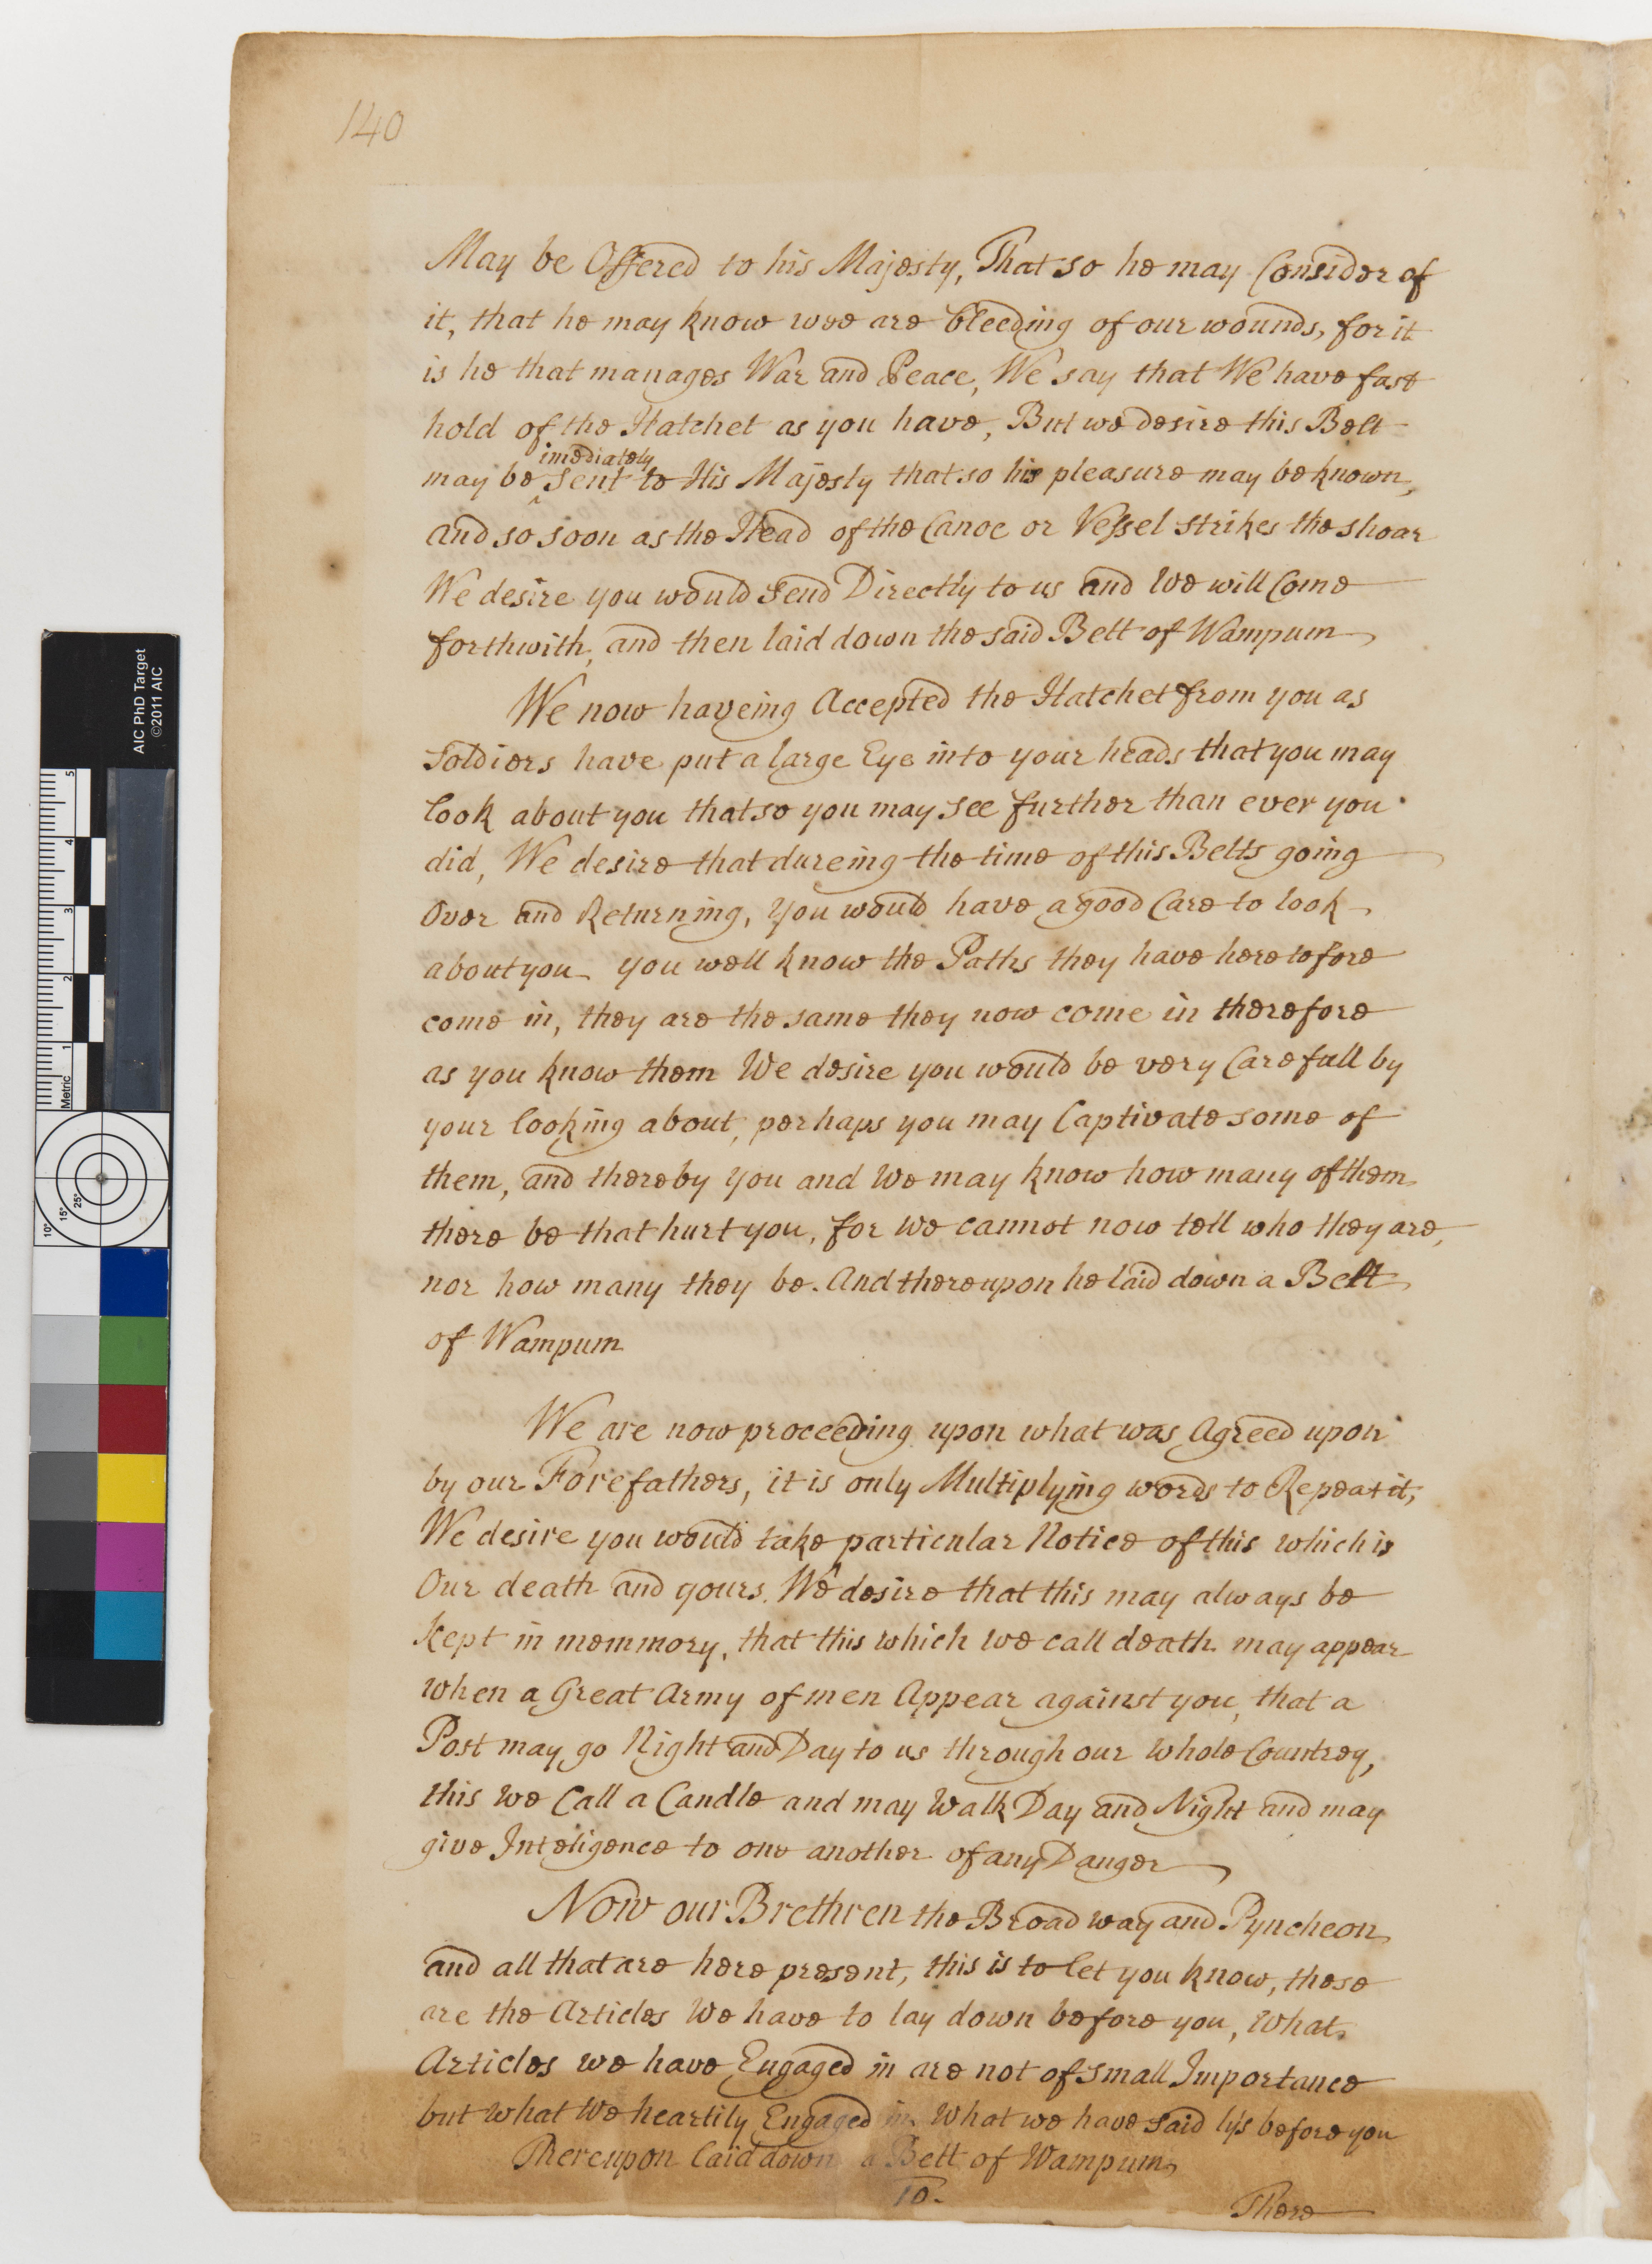 140
May be Offered to his Majesty, That so he may Consider of
it, that he may know wee are bleeding of our wounds, for it
is he that manages War and Peace, We say that We have fast
hold of the Hatchet as you have, But we desire this Belt
imediately
may be ^ Sent to His Majesty that so his pleasure may be known,
and so soon as the Head of the Canoe or Vessel strikes the shoar
We desire you would Send Directly to us and We will Come
forthwith, and then laid down the said Belt of Wampum
We now haveing Accepted the Hatchet from you as
Soldiers have put a large Eye into your heads that you may
look about you that so you may see further than ever you
did, We desire that dureing the time of this Belts going
Over and Returning, you would have a good Care to look
about you you well know the Paths they have heretofore
come in, they are the same they now come in therefore
as you know them We desire you would be very Carefull by
your looking about, perhaps you may Captivate some of
them, and thereby you and We may know how many of them
there be that hurt you, for we cannot now tell who they are,
nor how many they be. And thereupon he laid down a Belt
of Wampum
We are now proceeding upon what was Agreed upon
by our Forefathers, it is only Multiplying words to Repeat it,
We desire you would take particular Notice of this which is
Our death and yours. We desire that this may always be
Kept in memmory, that this which we call death may appear
when a Great Army of men Appear against you, that a
Post may go Night and Day to us through our whole Countrey,
this we Call a Candle and may Walk Day and Night and may
give Inteligence to one another of any Danger
Now our Brethren the Broad way and Pyncheon
and all that are here present, this is to let you know, these
are the Articles We have to lay down before you, What
Articles we have Engaged in are not of small Importance
but what We heartily Engaged in. What we have said lys before you
Thereupon laid down a Belt of Wampum
10.
There
AIC PhD Target
©2011 AIC
5
4
3
2
1
Metric
10°
15°
25°